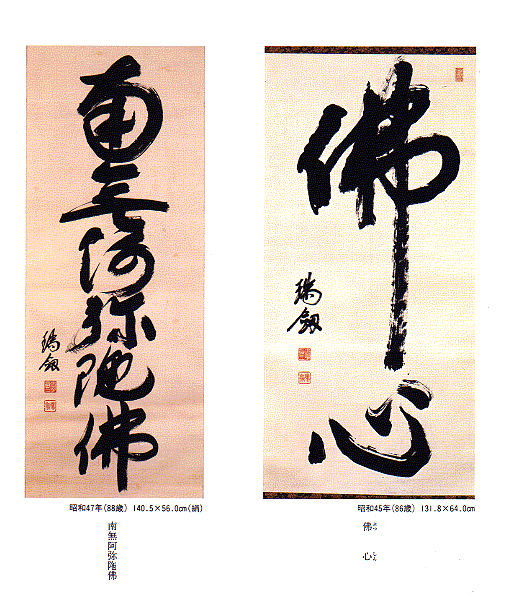 佛心
瑞劔
昭和45年(86歳) 131.8×64.0cm
佛心
南無阿弥陀佛
瑞劔
昭和47年(88歳) 140.5×56.0cm(絹)
南無阿弥陀佛